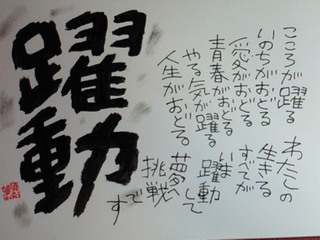 躍動
こころが躍る
いのちがおどる
愛がおどる
青春がおどる
やる気が躍る
人生がおどる
わたしの
生きる
すべてが
いま
躍動
して
夢
挑戦
です